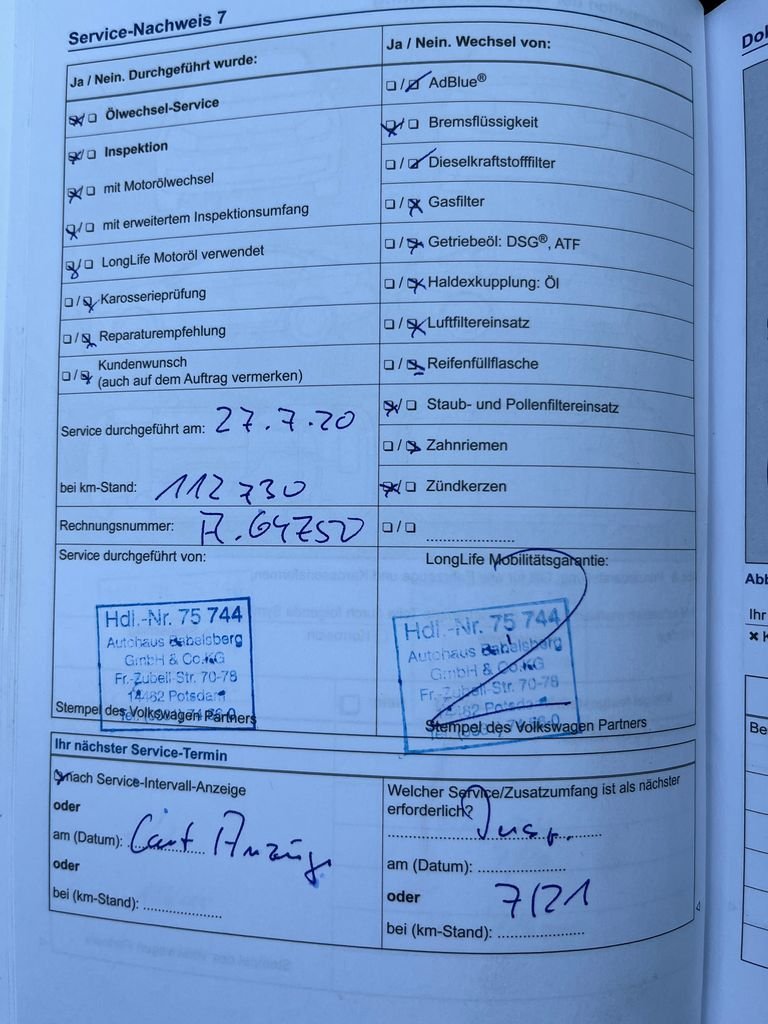 Service-Nachweis 7
Ja / Nein. Durchgeführt wurde:
Ölwechsel-Service
Inspektion
mit Motorölwechsel
mit erweitertem Inspektionsumfang
LongLife Motoröl verwendet
Karosserieprüfung
Reparaturempfehlung
Kundenwunsch
(auch auf dem Auftrag vermerken)
Service durchgeführt am: 27.7.20
bei km-Stand: 112 730
Rechnungsnummer: A.64750
Service durchgeführt von:
Hdl.-Nr. 75 744
Autohaus Babelsberg
GmbH & Co.KG
Fr.-Zubeil-Str. 70-78
14482 Potsdam
Stempel des Volkswagen Partners
Ja / Nein. Wechsel von:
AdBlue®
Bremsflüssigkeit
Dieselkraftstofffilter
Gasfilter
Getriebeöl: DSG®, ATF
Haldexkupplung: Öl
Luftfiltereinsatz
Reifenfüllflasche
Staub- und Pollenfiltereinsatz
Zahnriemen
Zündkerzen
LongLife Mobilitätsgarantie:
Hdl.-Nr. 75 744
Autohaus Babelsberg
GmbH & Co.KG
Fr.-Zubeil-Str. 70-78
14482 Potsdam
Stempel des Volkswagen Partners
Ihr nächster Service-Termin
nach Service-Intervall-Anzeige
oder
am (Datum): Laut Anzeige
oder
bei (km-Stand):
Welcher Service/Zusatzumfang ist als nächster
erforderlich?
Insp.
am (Datum):
oder 7/21
bei (km-Stand):
4
Abb
Ihr
Be